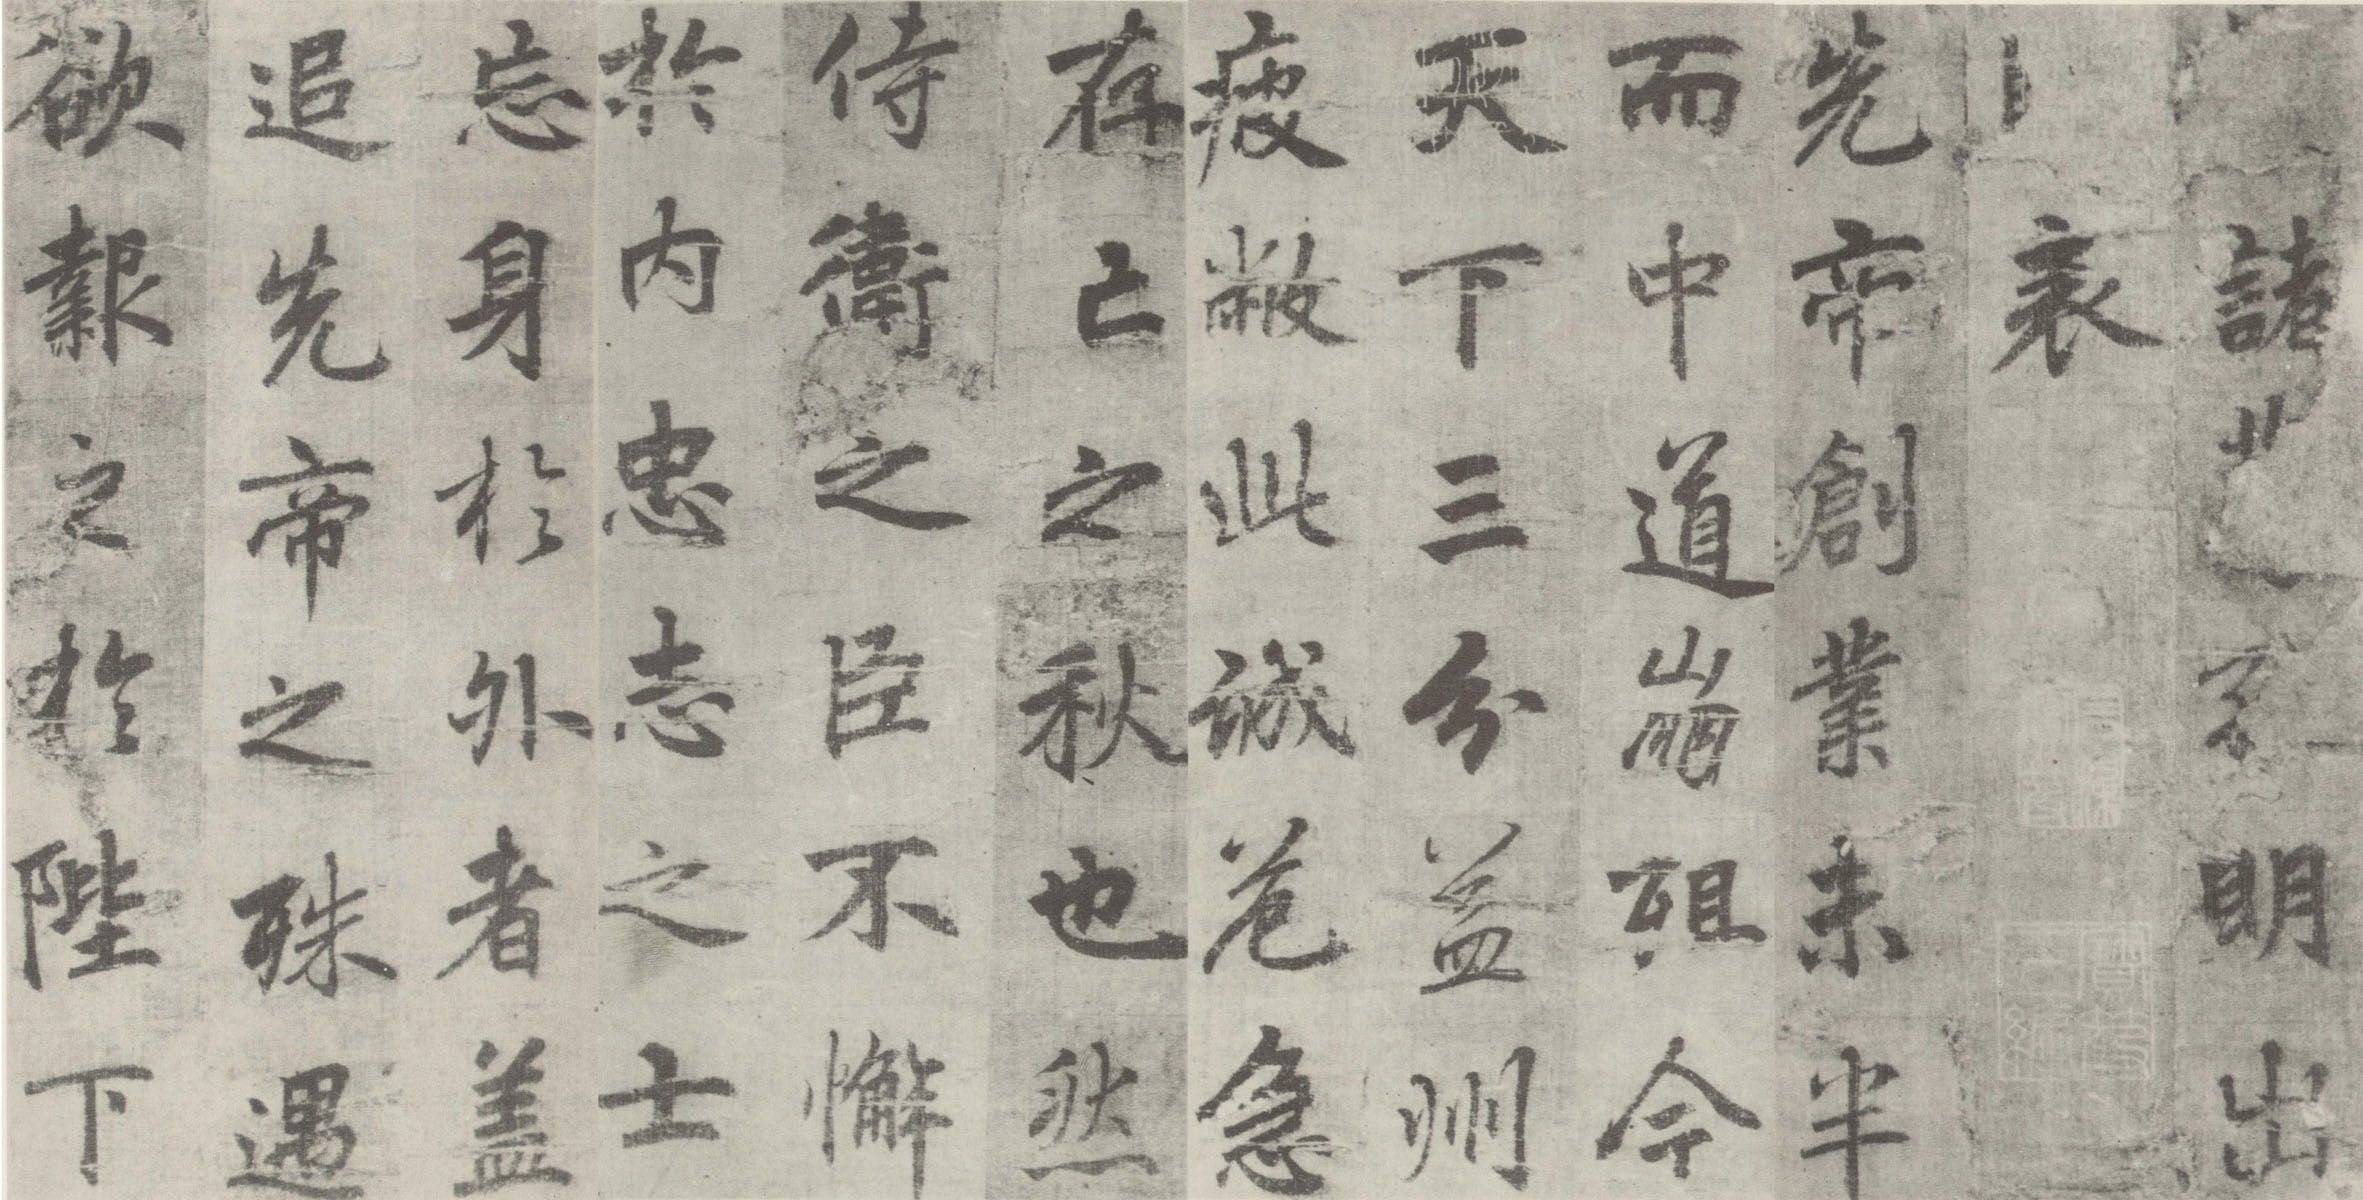 諸明出
表
先帝創業未半
而中道崩殂今
天下三分益州
疲敝此誠危急
存亡之秋也然
侍衛之臣不懈
於内忠志之士
忘身於外者盖
追先帝之殊遇
欲報之於陛下